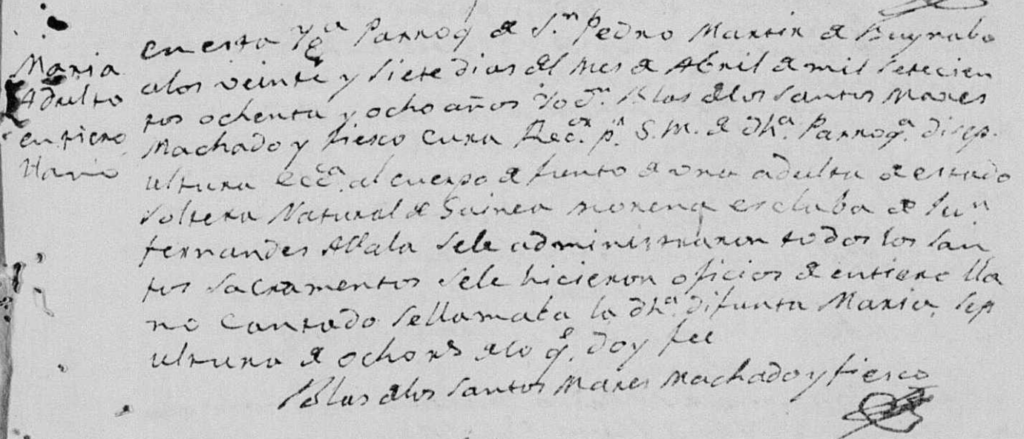 Maria
Adulto
entiero
Llano
en esta Yg.ª Parroq. de S.n Pedro Martir de Buynabo
a los veinte y siete dias del Mes de Abril de mil setecien
tos ochenta y ocho años Yo Dn. Blas de los Santos Mares
Machado y fiesco cura Rec.or pr. S.M. de dha. Parroq.ª di sep
ultura ecc.ª al cuerpo defunto de una adulta de estado
soltera Natural de Guinea morena esclaba de Ju.n
fernandes Allala sele administraron todos los San
tos sacramentos sele hicieron oficios de entiero lla
no Cantado sellamaba la dh.ª difunta Maria. sep
ultura de ocho rs de lo q.e doy fee
Blas de los Santos Mares Machado y fiesco